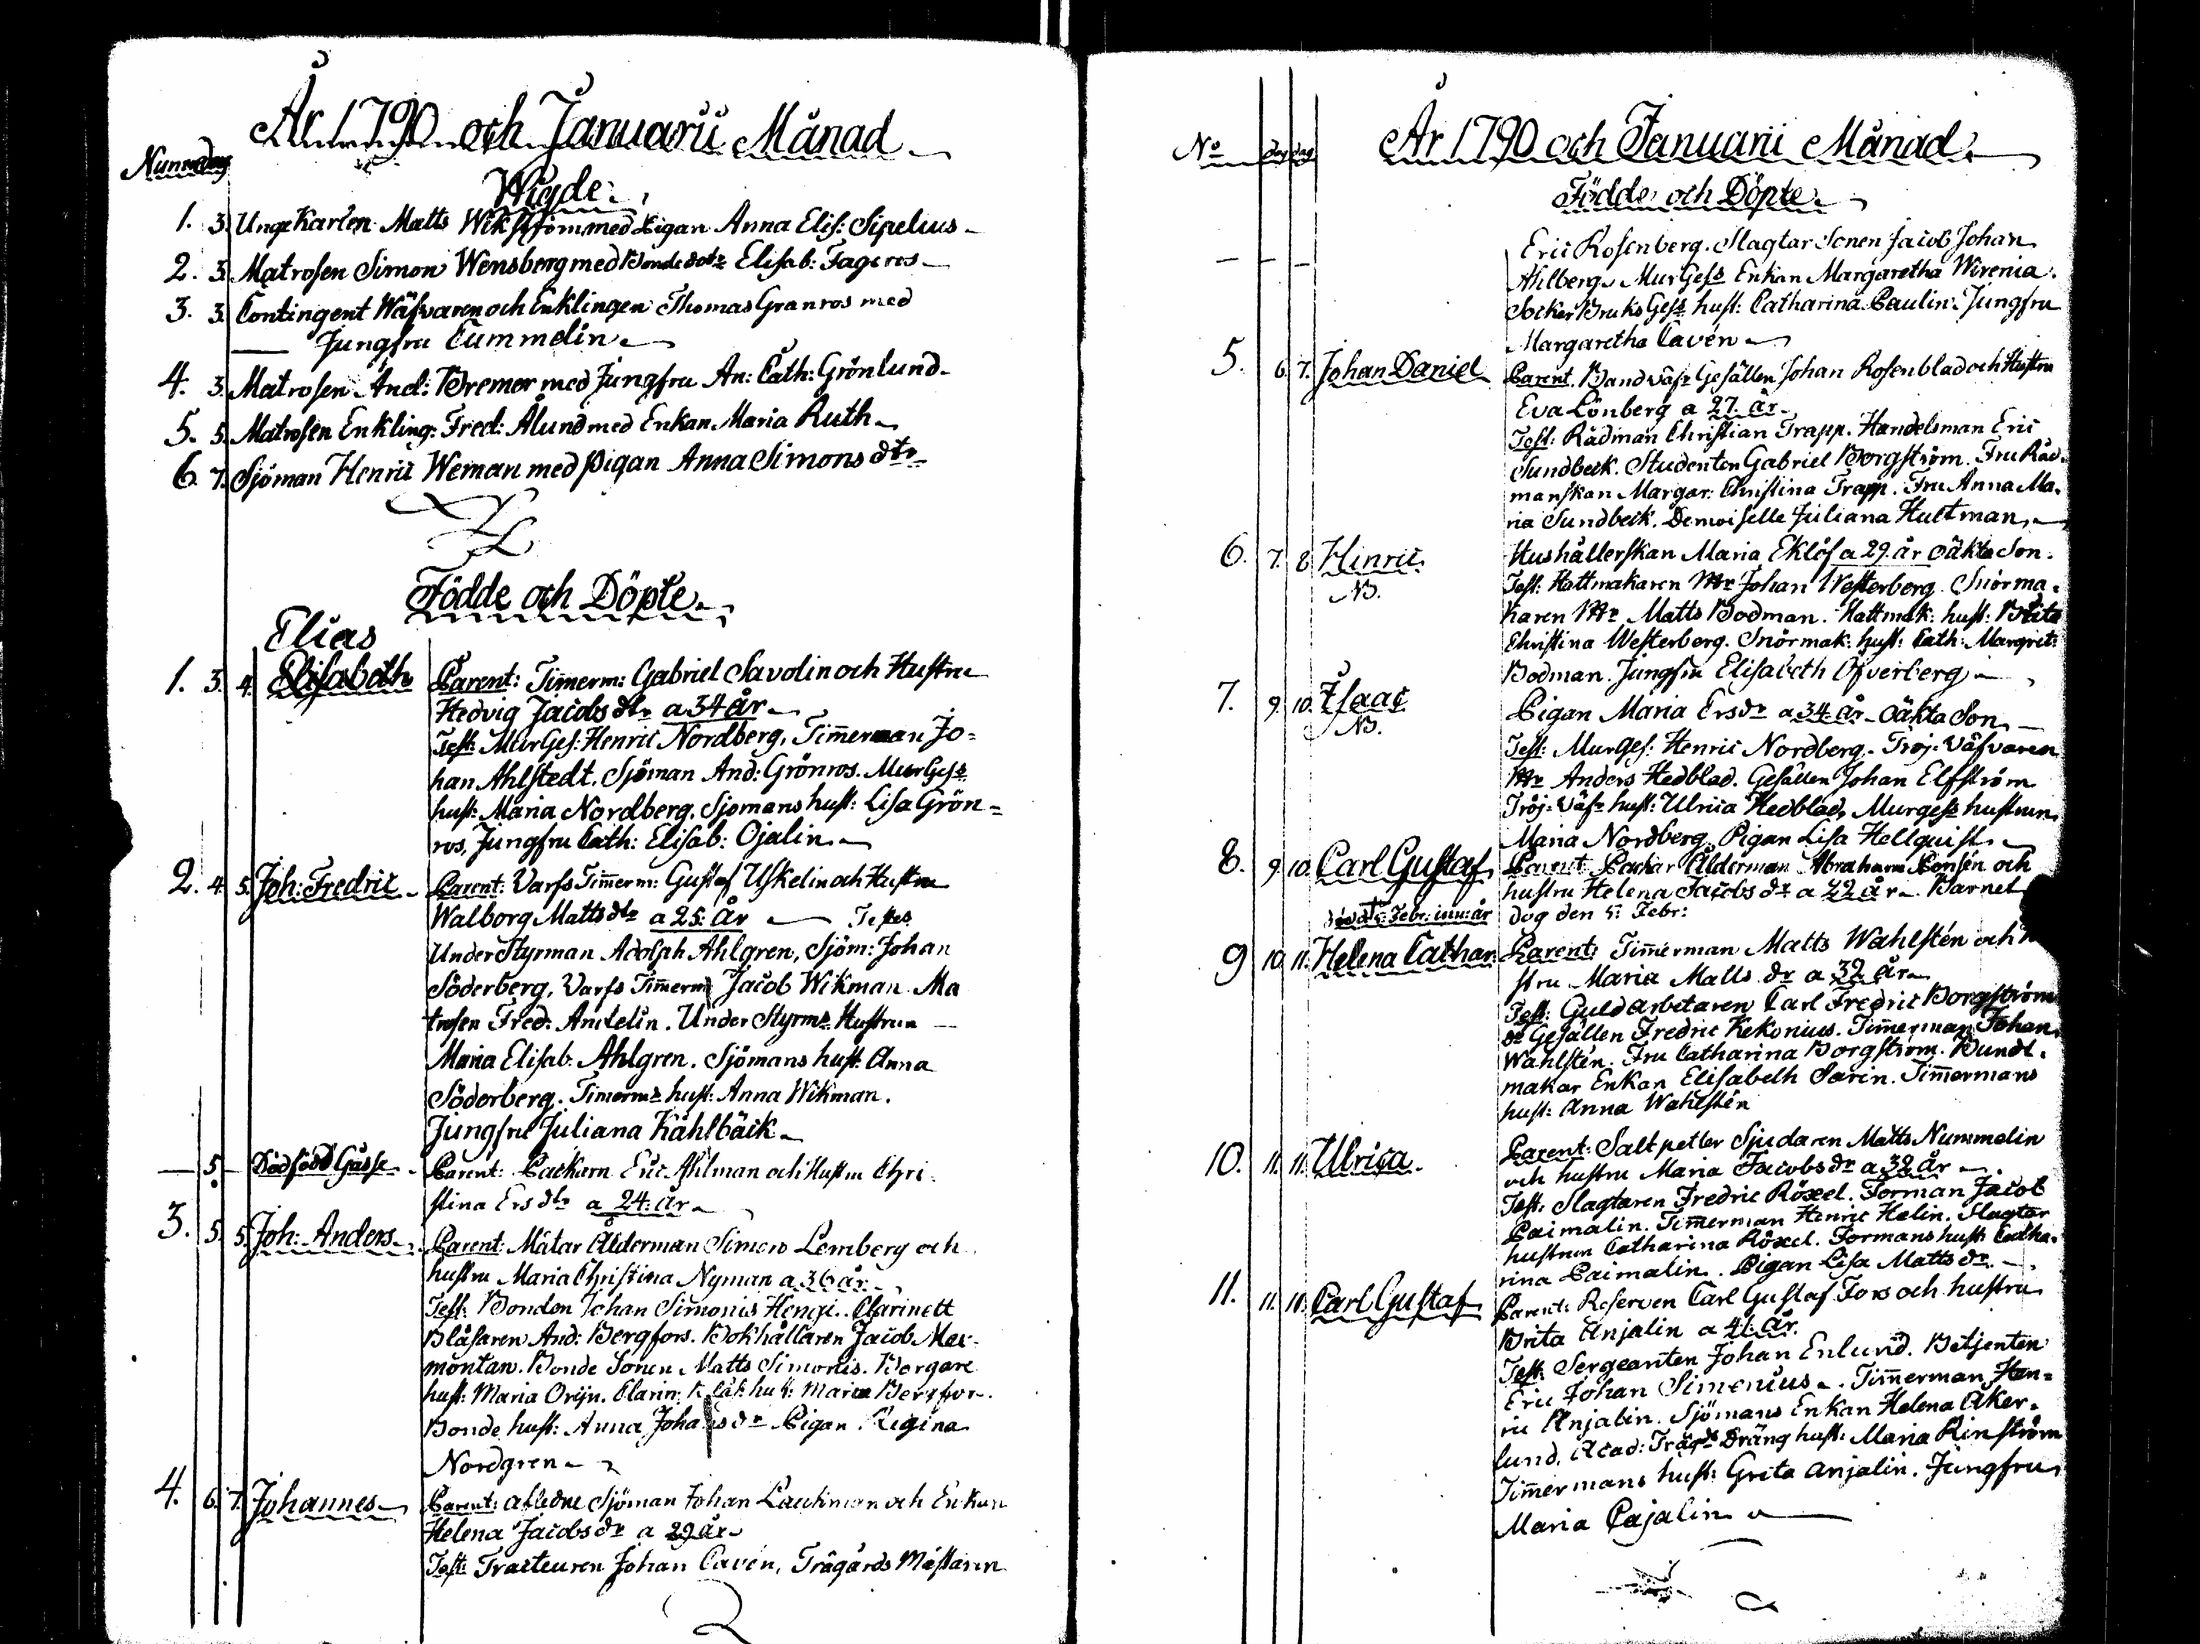 År 1790 och Januarii Månad
Num dag
Wigde
1. 3. Unge Karlen Matts Wikström med Pigan Anna Elis: Sipelius
2. 3. Matrosen Simon Wensberg med Bondedotr Elisab: Fageros
3. 3. Contingent Wäfvaren och Enklingen Thomas Granros med
Jungfru Tummelin
4. 3. Matrosen And: Bremer med Jungfru An: Cath: Grönlund
5. 5. Matrosen Enkling: Fred: Ålund med Enkan Maria Ruth
6. 7. Sjöman Henric Weman med Pigan Anna Simons dtr
Födde och Döpte
Elias
1. 3. 4. Elisabeth Parent: Timerm: Gabriel Savolin och Hustru
Hedvig Jacobs dtr a 34 år
Test: MurGes: Henric Nordberg, Timerman Jo=
han Ahlstedt. Sjöman And: Grönros. MurGess
hust: Maria Nordberg. Sjömans hust: Lisa Grön=
ros, Jungfru Cath: Elisab: Ojalin
2. 4. 5. Joh: Fredric Parent: Varfs Timerm: Gustaf Uskelin och Hustru
Walborg Matts dtr a 25: år Testes
Under Styrman Adolph Ahlgren, Sjöm: Johan
Söderberg, Varfs Timerm Jacob Wikman Ma
trosen Fred: Amtelin. Under Styrms Hustrun
Maria Elisab: Ahlgren. Sjömans hust: Anna
Söderberg. Timerms hust: Anna Wikman.
Jungfru Juliana Kåhlbäck
5. Dödfödd Gåsse Parent: Packarn Eric Ahlman och Hustru Chri
stina Ers dtr a 24: år
3. 5. 5. Joh: Anders Parent: Mätar Ålderman Simon Lemberg och
hustru Maria Christina Nyman a 36 år
Test: Bonden Johan Simonis Clarinett
Blåsaren And: Bergfors. Bokhållaren Jacob Mex
montan. Bonde Sonen Matts Simonis. Borgare
hust: Maria Orijn. Clarin: hust: Maria Bergfor.
Bonde hust: Anna Johansdr Pigan Regina
Nordgren
4. 6. 7. Johannes Parent: afledne Sjöman Johan Lautiman och Enkan
Helena Jacobs dr a 29 år
Test: Tracteuren Johan Caven, Trägårds Mästaren
No dag dag
År 1790 och Januarii Månad
Födde och Döpte
Eric Rosenberg. Slagtar Sonen Jacob Johan
Ahlberg. MurGess Enkan Margaretha Wirenia.
Socker Bruks Gess hust: Catharina Paulin. Jungfru
Margaretha Cavén
5. 6. 7. Johan Daniel Parent. Bandväfr Gesällen Johan Rosenblad och Hustru
Eva Lönberg a 27. år
Test: Rådman Christian Trapp. Handelsman Eric
Sundbeck. Studenten Gabriel Borgström. Fru Råd
manskan Margar: Christina Trapp. Fru Anna Ma
ria Sundbeck. Demoiselle Juliana Hultman
6. 7. 8. Hinric Hushållerskan Maria Eklöf a 29. år oäkta Son.
NB. Test: Hattmakaren Mr Johan Westerberg. Snörma
karen Mr Matts Bodman. Hattmak: hust: Brita
Christina Westerberg. Snörmak: hust: Cath: Margret:
Bodman. Jungfru Elisabeth Öfverberg
7. 9. 10. Isaac Pigan Maria Ersdr a 34. år oäkta Son
NB. Test: MurGes: Henric Nordberg. Tröj: Väfvaren
Mr Anders Hedblad. Gesällen Johan Elfström
Tröj: Väfr hust: Ulrica Hedblad, Murgess hustrun
Maria Nordberg, Pigan Lisa Hellquist
8. 9. 10. Carl Gustaf Parent: Packar Ålderman Abraham Ponsén och
hustru Helena Jacobs dr a 22 år Barnet
död 5: Febr: innev: år dog den 5: Febr:
9 10. 11. Helena Cathar. Parent: Timerman Matts Wahlstén och
stru Maria Matts dr a 32 år
Test: Guldarbetaren Carl Fredric Borgström
dr Gesällen Fredric Kekonius. Timerman Johan
Wahlstén. Fru Catharina Borgström. Bundt
makar Enkan Elisabeth Sarin. Timermans
hust: Anna Wahlstén
10. 11. 11. Ulrica. Parent: Saltpetter Sjudaren Matts Nummelin
och hustru Maria Jacobs dr a 32 år
Test: Slagtaren Fredric Röxel. Forman Jacob
Paimalin. Timerman Henric Helin. Slagtar
hustrun Catharina Röxel. Formans hust: Catha
rina Paimalin. Pigan Lisa Matts dr
11. 11. 11. Carl Gustaf Parent: Reserven Carl Gustaf Fors och hustru
Brita Anjalin a 41. år.
Test: Sergeanten Johan Enlund. Betjenten
Eric Johan Simenius. Timerman Hen=
ric Anjalin. Sjömans Enkan Helena Åker
lund. Acad: Trägds Dräng hust: Maria Rinström
Timermans hust: Greta Anjalin. Jungfru
Maria Pajalin